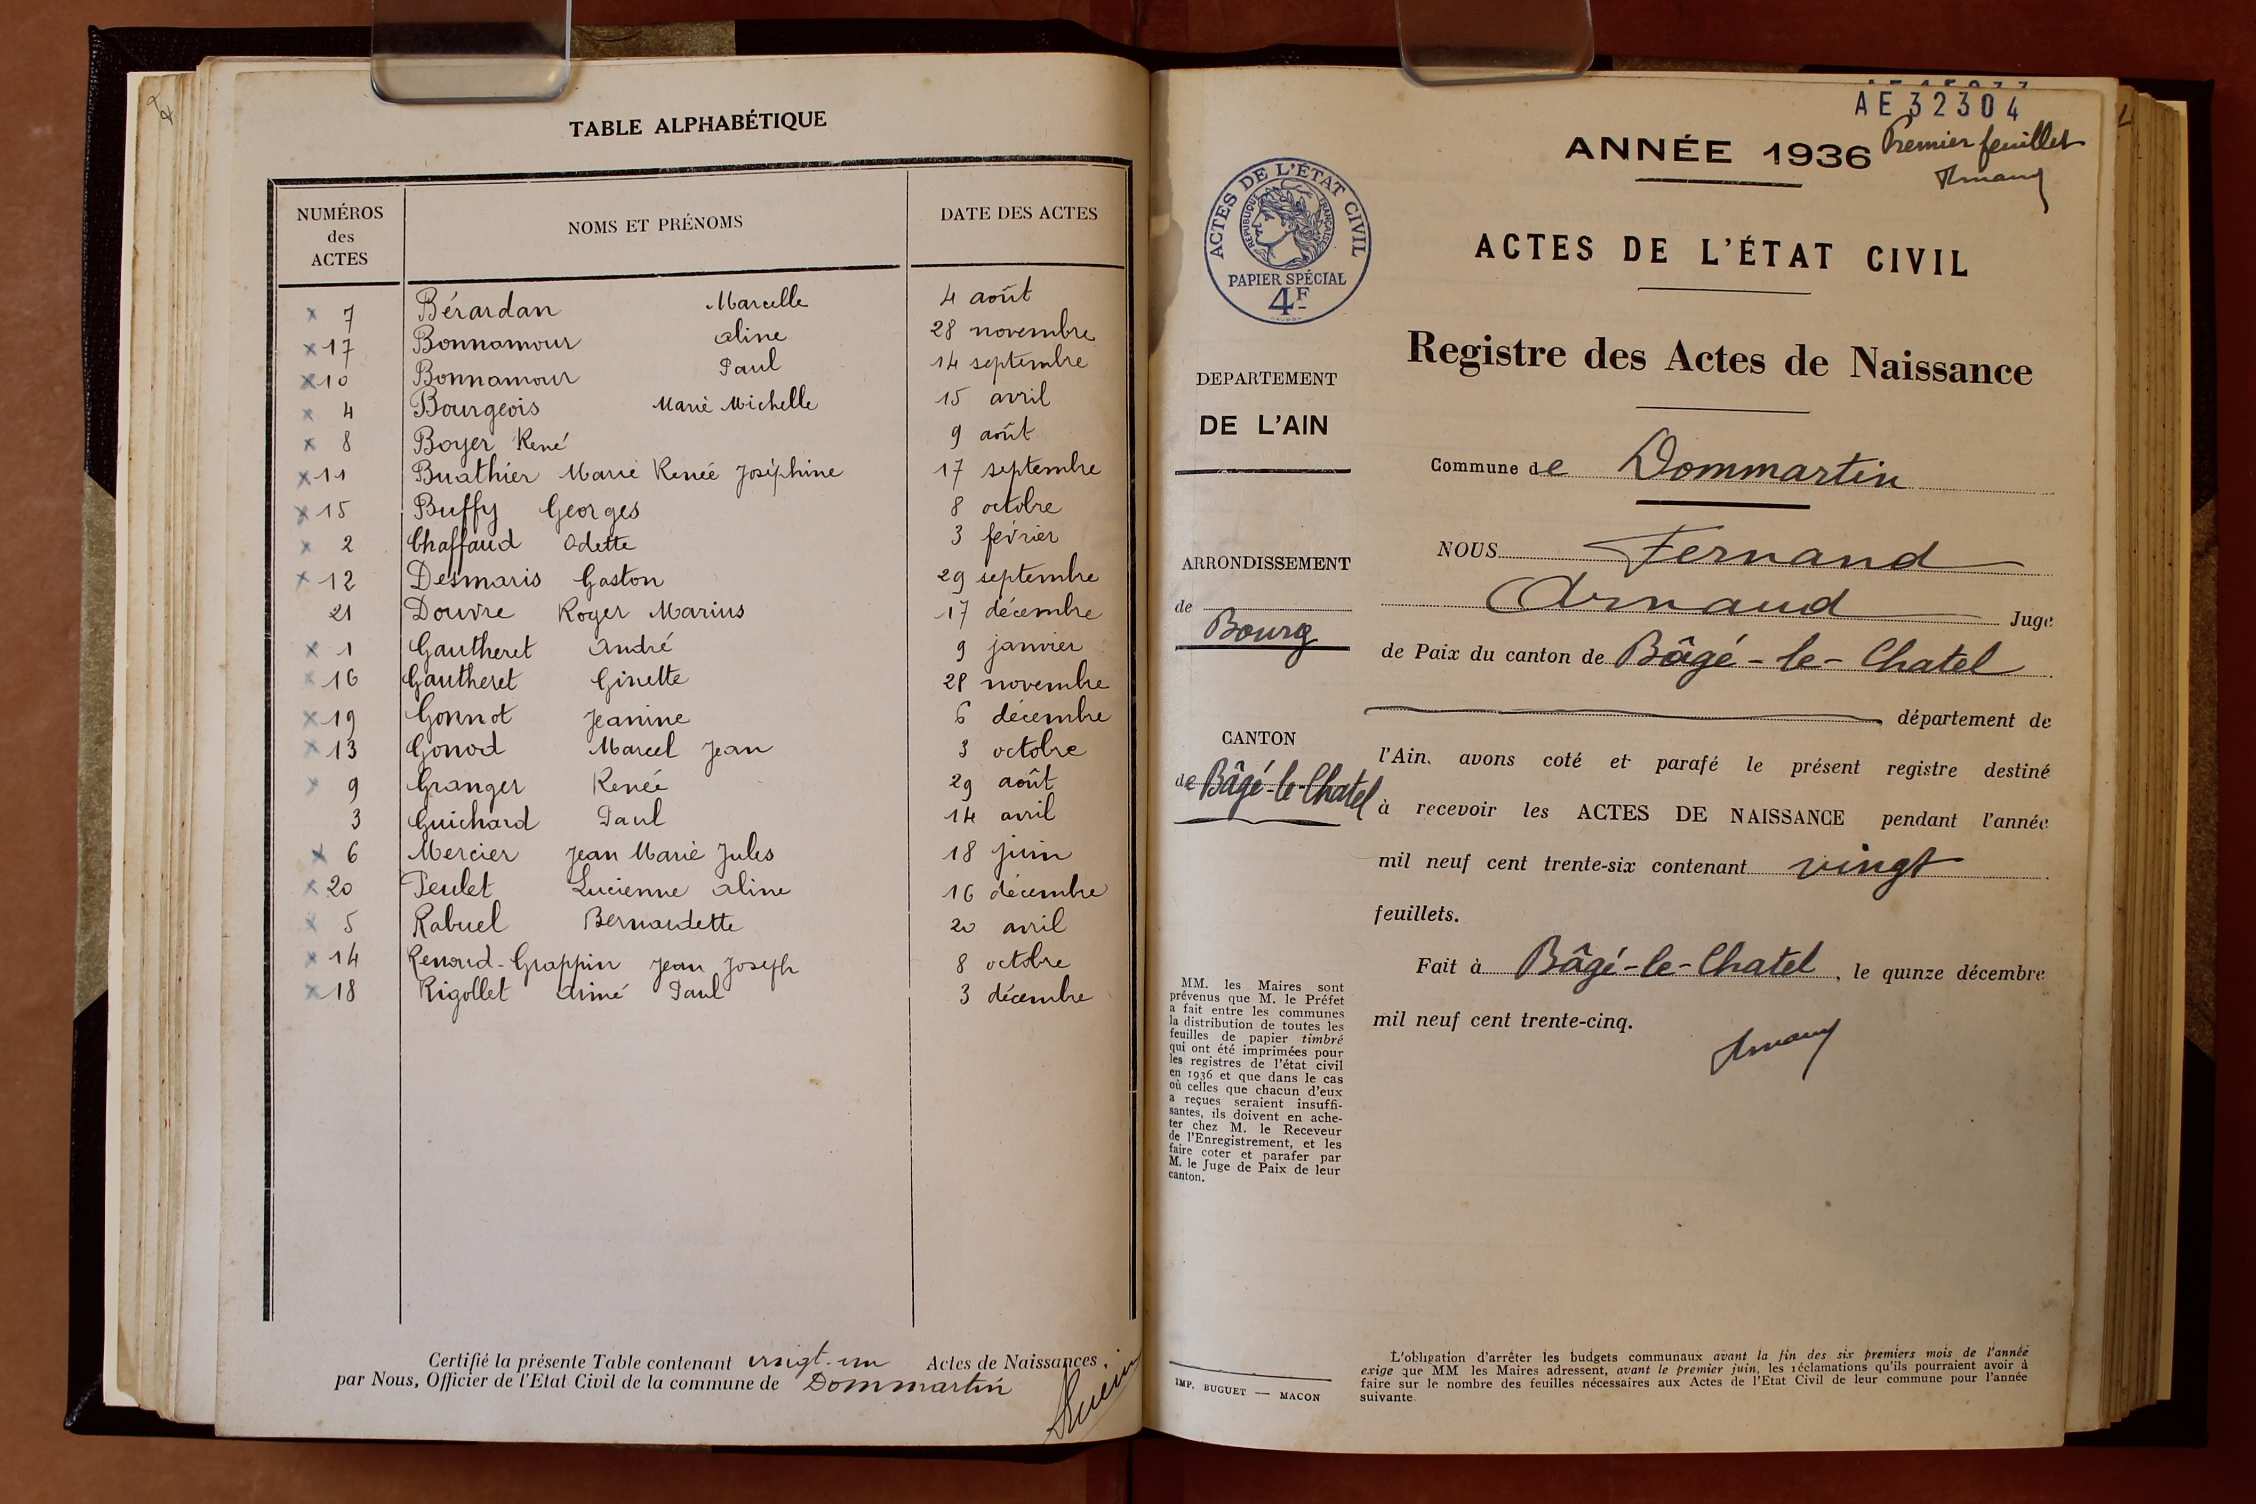 TABLE ALPHABÉTIQUE
NUMÉROS
des
ACTES
NOMS ET PRÉNOMS
DATE DES ACTES
x 7 Bérardan Marcelle 4 août
x 17 Bonnamour Aline 28 novembre
x 10 Bonnamour Paul 14 septembre
x 4 Bourgeois Marie Michelle 15 avril
x 8 Boyer René 9 août
x 11 Buathier Marie Renée Joséphine 17 septembre
x 15 Buffy Georges 8 octobre
x 2 Chaffaud Odette 3 février
x 12 Desmaris Gaston 29 septembre
21 Douvre Roger Marius 17 décembre
x 1 Gautheret André 9 janvier
x 16 Gautheret Ginette 28 novembre
x 19 Gonnot Jeanine 6 décembre
x 13 Gonod Marcel Jean 3 octobre
x 9 Granger Renée 29 août
3 Guichard Paul 14 avril
x 6 Mercier Jean Marie Jules 18 juin
x 20 Peulet Lucienne Aline 16 décembre
x 5 Rabuel Bernardette 20 avril
x 14 Renoud-Grappin Jean Joseph 8 octobre
x 18 Rigollet Aimé Paul 3 décembre
Certifié la présente Table contenant vingt-un Actes de Naissances,
par Nous, Officier de l'Etat Civil de la commune de Dommartin
AE32304
ANNÉE 1936
Premier feuillet
Arnaud
ACTES DE L'ÉTAT CIVIL
RÉPUBLIQUE FRANÇAISE
PAPIER SPÉCIAL
4F
ACTES DE L'ÉTAT CIVIL
Registre des Actes de Naissance
DEPARTEMENT
DE L'AIN
ARRONDISSEMENT
de
Bourg
CANTON
de Bâgé-le-Chatel
MM. les Maires sont
prévenus que M. le Préfet
a fait entre les communes
la distribution de toutes les
feuilles de papier timbré
qui ont été imprimées pour
les registres de l'état civil
en 1936 et que dans le cas
où celles que chacun d'eux
a reçues seraient insuffi-
santes, ils doivent en ache-
ter chez M. le Receveur
de l'Enregistrement, et les
faire coter et parafer par
M. le Juge de Paix de leur
canton.
IMP. BUGUET — MACON
Commune de Dommartin
NOUS Fernand
Arnaud Juge
de Paix du canton de Bâgé-le-Chatel
département de
l'Ain, avons coté et parafé le présent registre destiné
à recevoir les ACTES DE NAISSANCE pendant l'année
mil neuf cent trente-six contenant vingt
feuillets.
Fait à Bâgé-le-Chatel, le quinze décembre
mil neuf cent trente-cinq.
Arnaud
L'obligation d'arrêter les budgets communaux avant la fin des six premiers mois de l'année
exige que MM les Maires adressent, avant le premier juin, les réclamations qu'ils pourraient avoir à
faire sur le nombre des feuilles nécessaires aux Actes de l'Etat Civil de leur commune pour l'année
suivante.